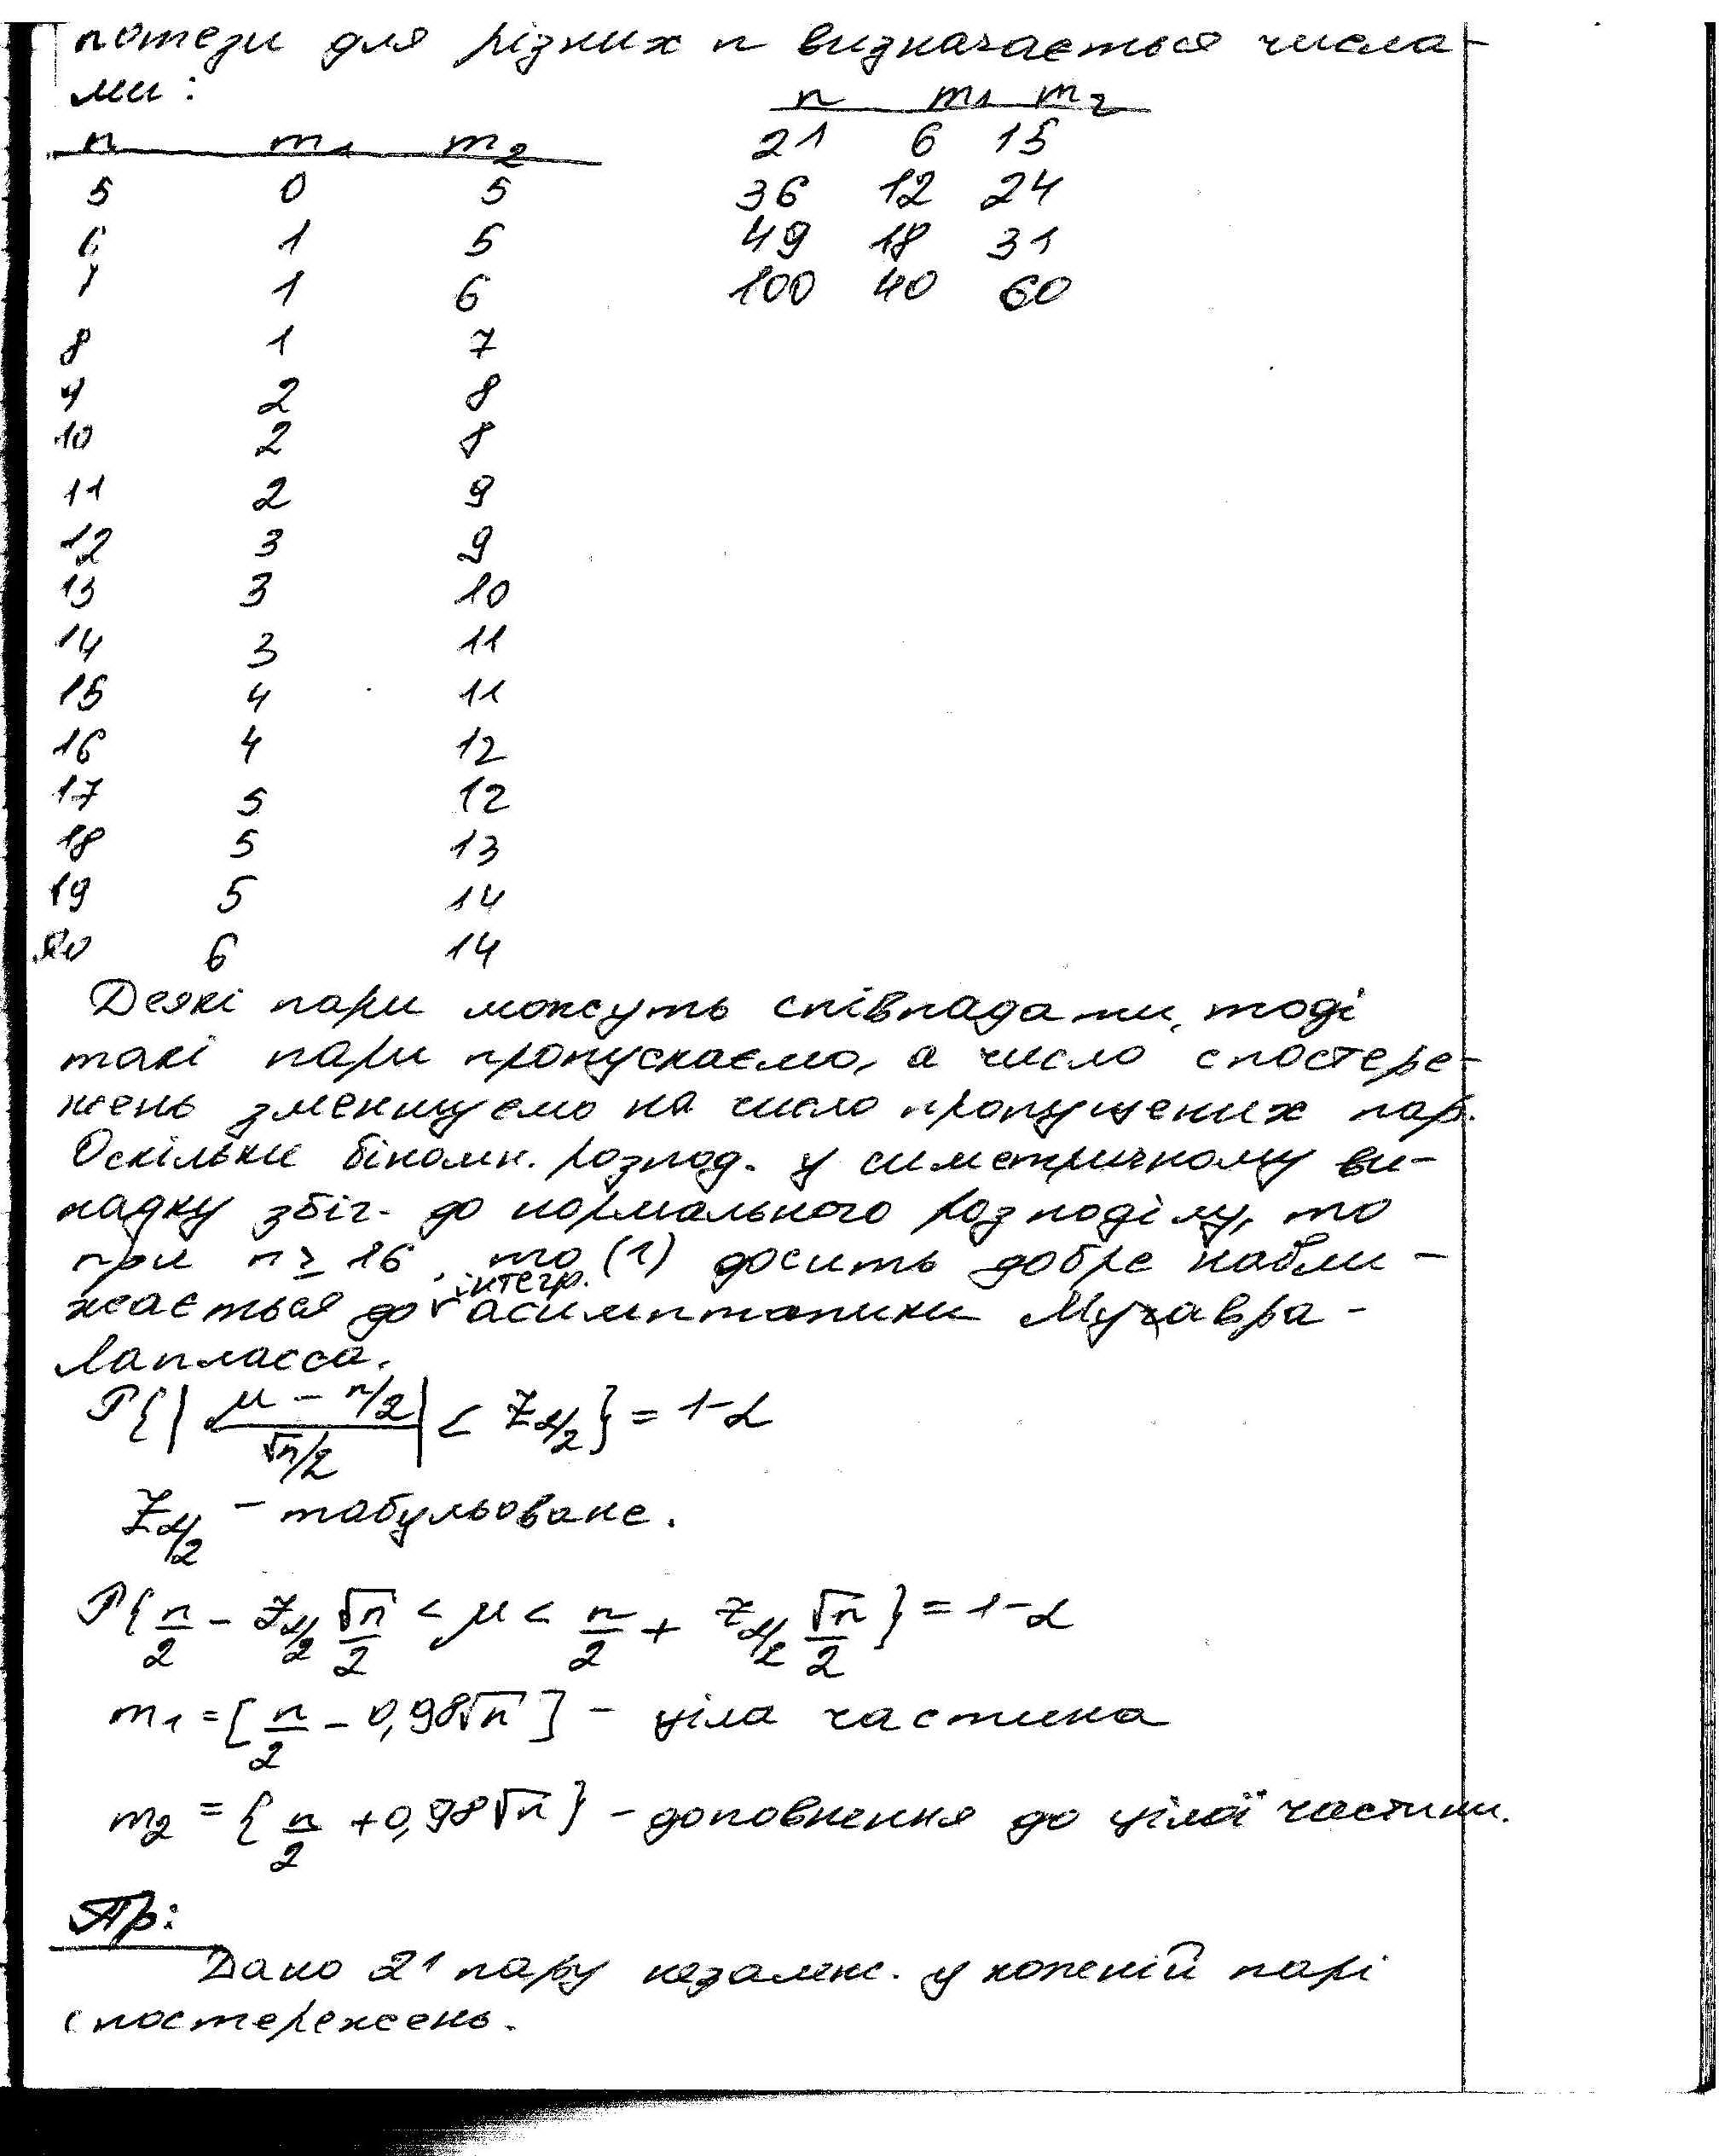 потези для різних n визначається числа-
ми:
n m₁ m₂
5 0 5
6 1 5
7 1 6
8 1 7
9 2 8
10 2 8
11 2 9
12 3 9
13 3 10
14 3 11
15 4 11
16 4 12
17 5 12
18 5 13
19 5 14
20 6 14
n m₁ m₂
21 6 15
36 12 24
49 18 31
100 40 60
Деякі пари можуть співпадати, тоді
такі пари пропускаємо, а число спостере-
жень зменшуємо на число пропущених пар.
Оскільки біномн. розпод. у симетричному ви-
падку збіг. до нормального розподілу, то
при n ≥ 16, то (1) досить добре набли-
жається до інтегр. асимптотики Муавра-
Лапласса.
P{|(μ - n/2)/(√n/2)| < Z_{α/2}} = 1-α
Z_{α/2} - табульоване.
P{n/2 - Z_{α/2} √n/2 < μ < n/2 + Z_{α/2} √n/2} = 1-α
m₁ = [n/2 - 0,98√n] - ціла частина
m₂ = {n/2 + 0,98√n} - доповнення до цілої частини.
Пр:
Дано 21 пару незалеж. у кожній парі
спостережень.